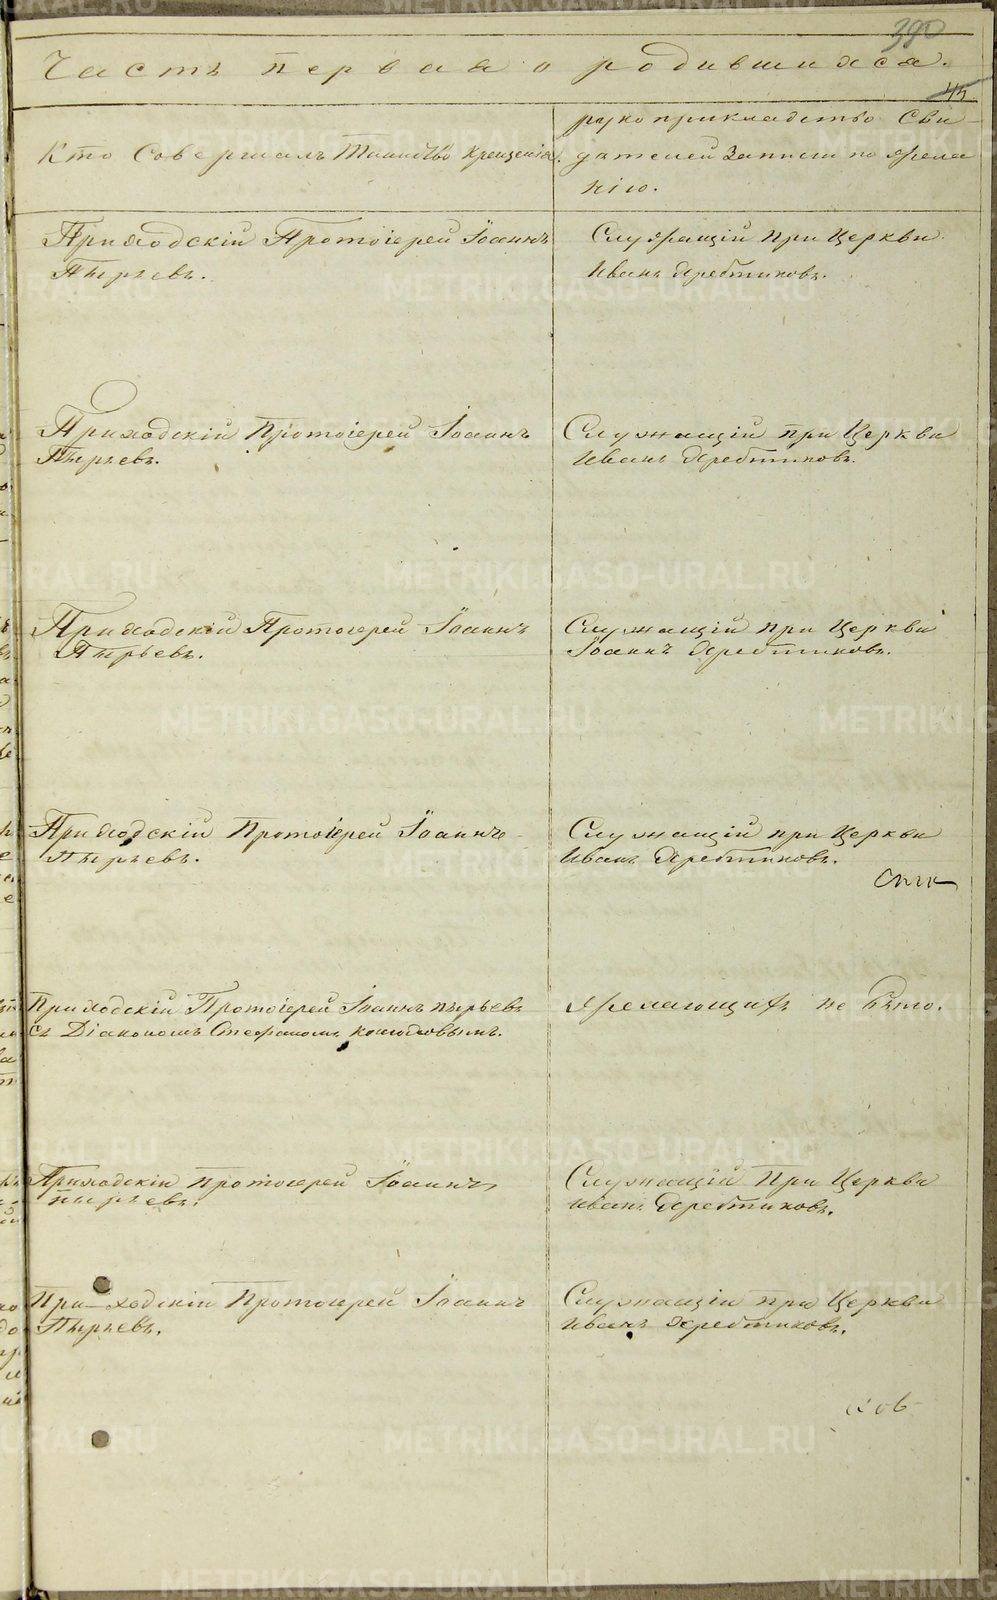 390
Часть первая о родившихся.
45
Кто Совершалъ Таинство крещенія.
рукоприкладство Сви-
дателей Записи по жела
нію.
Приходскій Протоіерей Іоаннъ
Пырьевъ.
Служащій при Церкви
Иванъ Жребтиковъ.
Приходскій Протоіерей Іоаннъ
Пырьевъ.
Служащій при Церкви
Иванъ Жребтиковъ.
Приходскій Протоіерей Іоаннъ
Пырьевъ.
Служащій при Церкви
Іоаннъ Жребтиковъ.
Приходскій Протоіерей Іоаннъ
Пырьевъ.
Служащій при Церкви
Иванъ Жребтиковъ.
Приходскій Протоіерей Іоаннъ пырьевъ
Съ Діакономъ Стефаномъ
желающихъ не было.
Приходскій протоіерей Іоаннъ
пырьевъ.
Служащій При Церкви
Иванъ Жребтиковъ.
При-ходскій Протоіерей Іоаннъ
Пырьевъ.
Служащій при Церкви
Иванъ Жребтиковъ.
METRIKI.GASO-URAL.RU